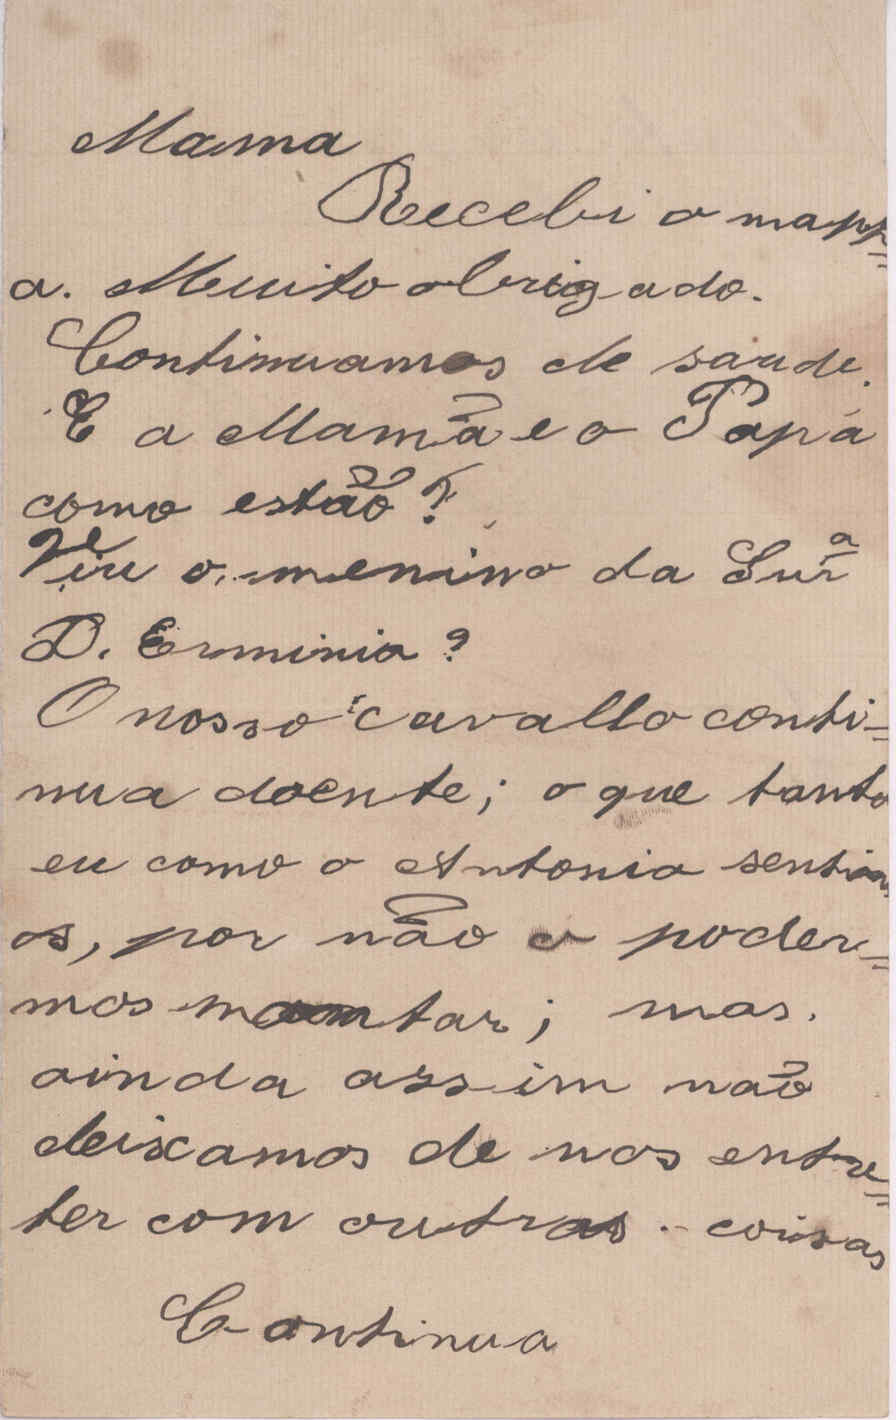 Mama
Recebi o mapp=
a. Muito obrigado.
Continuamos de saude.
E a Mamãe e o Papá
como estão?
Viu o menino da Snrª
D. Erminia?
O nosso cavallo conti=
nua doente; o que tanto
eu como o Antonio sentim
os, por não o poder=
mos montar; mas.
ainda assim não
deixamos de nos entre=
ter com outras coisas
Continua